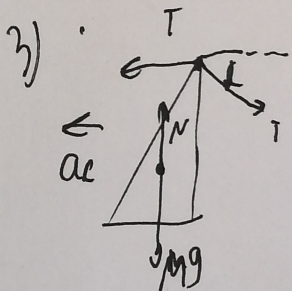 3)
T
α
T
N
ac
Mg